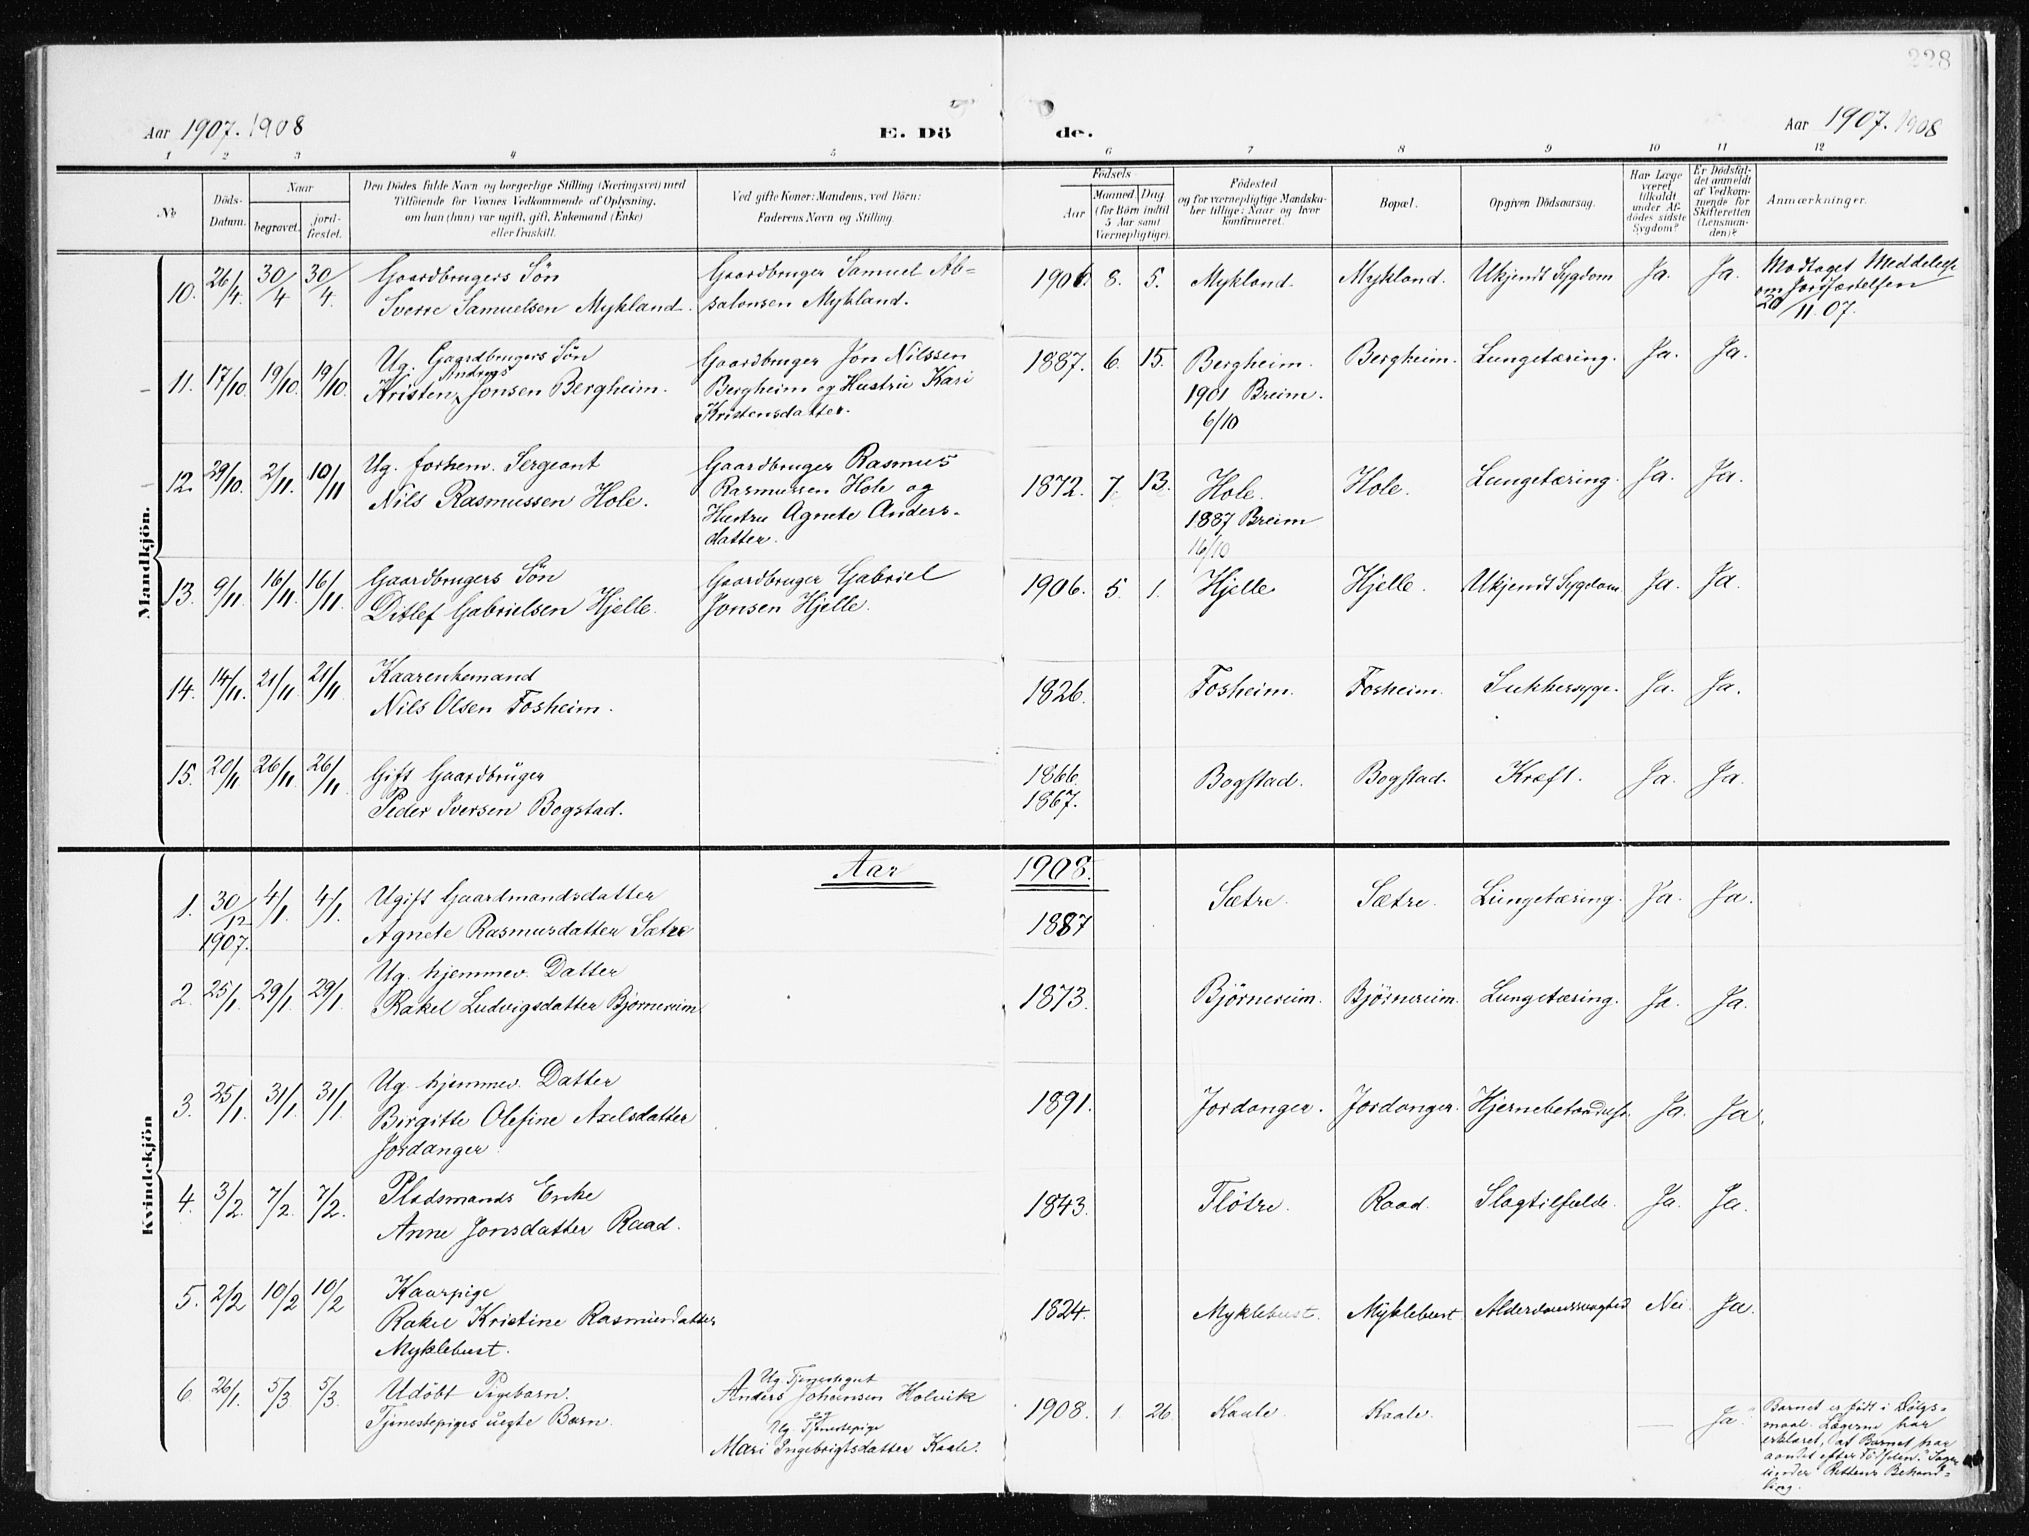 228
Aar 1907. 1908
E. Dö
de.
Aar 1907. 1908
1 2 3 4 5 6 7 8 9 10 11 12
No
Döds-
Datum.
Naar
begravet.
jord-
fæstet.
Den Dödes fulde Navn og borgerlige Stilling (Næringsvei) med
Tilföiende for Voxnes Vedkommende af Oplysning,
om han (hun) var ugift, gift, Enkemand (Enke)
eller fraskilt.
Ved gifte Koner: Mandens, ved Börn:
Faderens Navn og Stilling.
Födsels
Aar
Maaned Dag
(for Börn indtil
5 Aar samt
Værnepligtige).
Födested
og for værnepligtige Mandska-
ber tillige: Naar og hvor
konfirmeret.
Bopæl.
Opgiven Dödsaarsag.
Har Læge
været
tilkaldt
under Af-
dödes sidste
Sygdom?
Er Dödsfal-
det anmeldt
af Vedkom-
mende for
Skifteretten
(Lensman-
den)?
Anmærkninger.
Mandkjön.
10. 26/4. 30/4 30/4. Gaardbrugers Søn
Sverre Samuelsen Mykland.
Gaardbruger Samuel Ab-
salonsen Mykland.
1906. 8. 5. Mykland. Mykland. Ukjendt Sygdom Ja. Ja.
Modtaget Meddelelse
om Jordfæstelsen
20/11. 07.
11. 17/10. 19/10. 19/10. Ug. Gaardbrugers Søn
Andreas
Kristen Jonsen Bergheim.
Gaardbruger Jon Nilssen
Bergheim og Hustru Kari
Kristensdatter.
1887. 6. 15. Bergheim.
1901 Breim.
6/10
Bergheim. Lungetæring. Ja. Ja.
12. 29/10. 2/11. 10/11 Ug. forhenv. Sergeant
Nils Rasmussen Hole.
Gaardbruger Rasmus
Rasmussen Hole og
Hustru Agnete Anders-
datter.
1872. 7. 13. Hole.
1887 Breim
16/10
Hole. Lungetæring. Ja. Ja.
13. 9/11. 16/11 16/11. Gaardbrugers Søn
Ditlef Gabrielsen Hjelle.
Gaardbruger Gabriel
Jonsen Hjelle.
1906. 5. 1. Hjelle Hjelle. Ukjendt Sygdom. Ja. Ja.
14. 14/11. 21/11 21/11 Kaarenkemand
Nils Olsen Fosheim.
1826. Fosheim. Fosheim. Sukkersyge. Ja. Ja.
15. 20/11 26/11 26/11. Gift Gaardbruger
Peder Iversen Bogstad.
1866.
1867.
Bogstad. Bogstad. Kræft. Ja. Ja.
Aar 1908.
Kvindekjön
1. 30/12
1907.
4/1. 4/1. Ugift Gaardmandsdatter
Agnete Rasmusdatter Sætre
1887 Sætre. Sætre. Lungetæring. Ja. Ja.
2. 25/1. 29/1. 29/1. Ug. hjemmev. Datter
Rakel Ludvigsdatter Bjørnereim
1873. Bjørnereim. Bjørnereim. Lungetæring. Ja. Ja.
3. 25/1. 31/1. 31/1 Ug. hjemmev. Datter
Birgitte Olefine Axelsdatter
Jordanger.
1891. Jordanger. Jordanger. Hjernebetændelse Ja. Ja.
4. 3/2. 7/2. 7/2. Pladsmands Enke
Anne Jonsdatter Raad.
1843. Fløtre. Raad. Slagtilfælde. Ja. Ja.
5. 2/2 10/2 10/2 Kaarpige
Rakel Kristine Rasmusdatter
Myklebust.
1824. Myklebust. Myklebust. Alderdomssvaghed Nei. Ja.
6. 26/1. 5/3 5/3. Udøbt Pigebarn.
Tjenestepiges uegte Barn.
Ug. Tjenestegut
Anders Johansen Holvik
og
Ug. Tjenestepige
Mari Ingebrigtsdatter Kaale.
1908. 1. 26. Kaale. Kaale. — Ja.
Barnet er født i Dølgs-
maal. Lægerne har
erklæret, at Barnet har
aandet efter Fødslen. Sagen
under Rettens Behand-
ling.